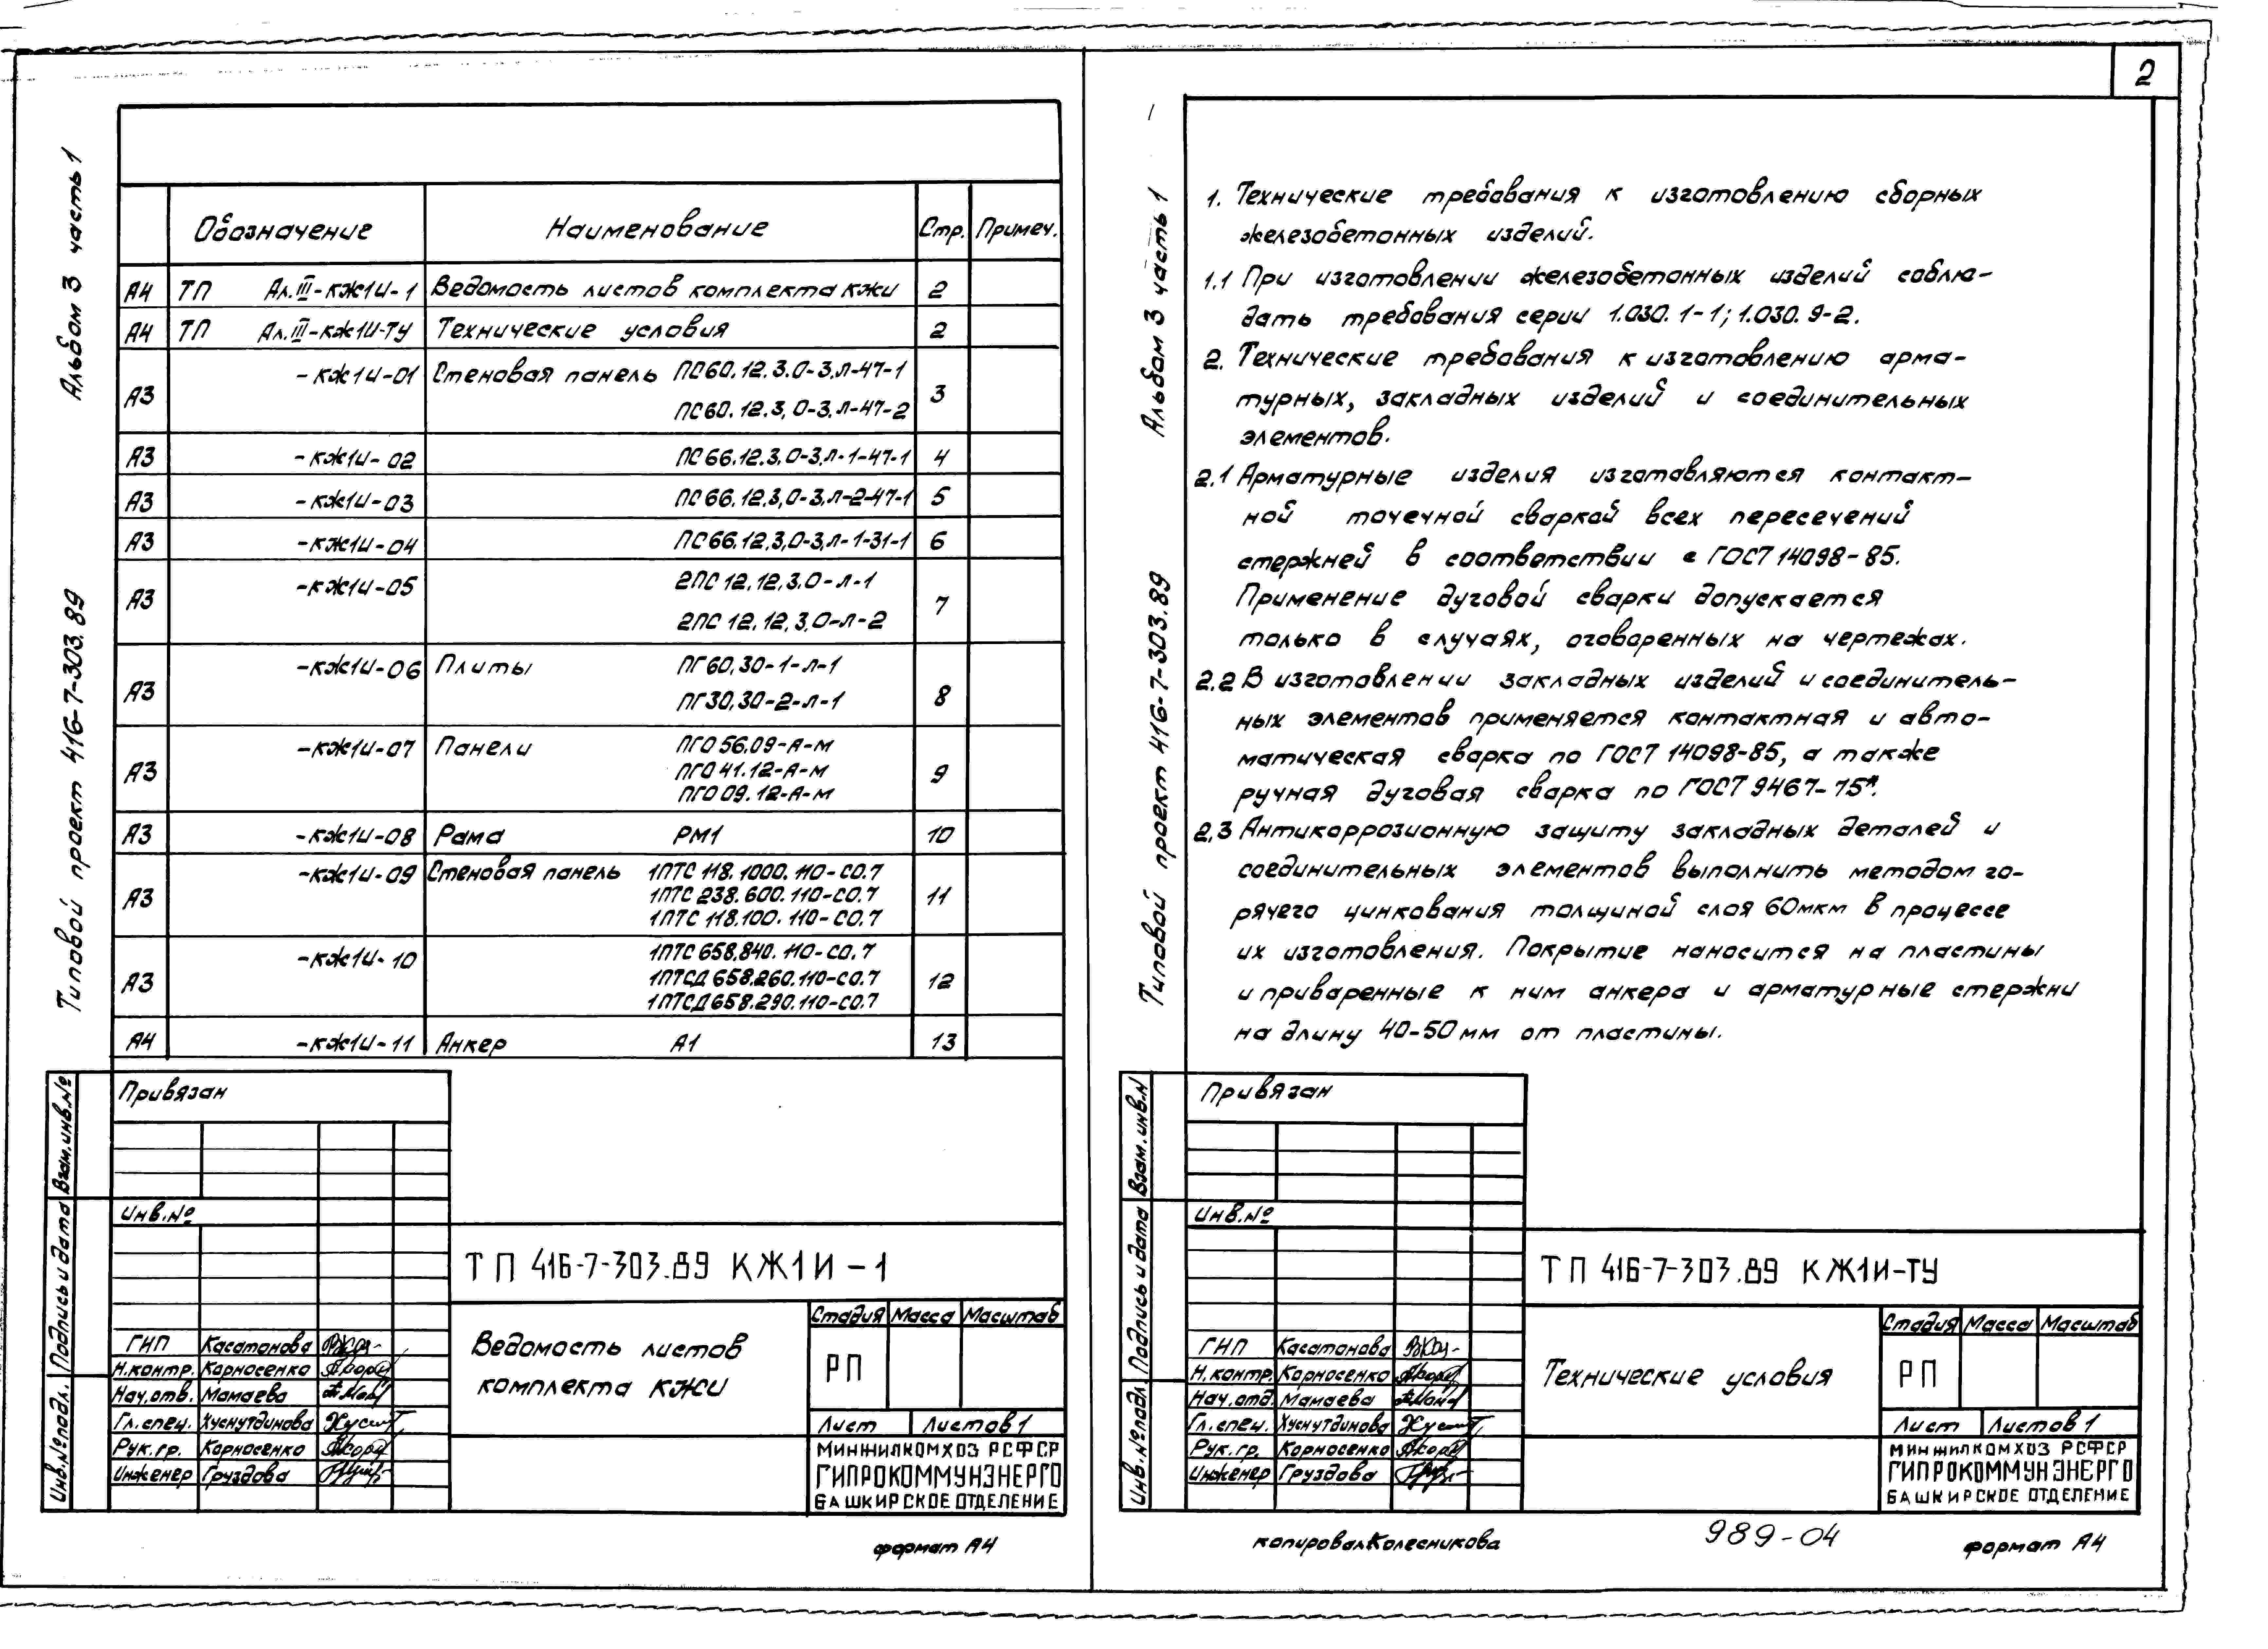 2
Альбом 3 часть 1
Типовой проект 416-7-303.89
Обозначение Наименование Стр. Примеч.
А4 ТП Ал.III-КЖ1И-1 Ведомость листов комплекта КЖИ 2
А4 ТП Ал.III-КЖ1И-ТУ Технические условия 2
А3 -КЖ1И-01 Стеновая панель ПС60.12.3.0-3.Л-47-1 3
ПС60.12.3,0-3.Л-47-2
А3 -КЖ1И-02 ПС66.12.3,0-3.Л-1-47-1 4
А3 -КЖ1И-03 ПС66.12.3,0-3.Л-2-47-1 5
А3 -КЖ1И-04 ПС66.12.3,0-3.Л-1-31-1 6
А3 -КЖ1И-05 2ПС12.12,3.0-Л-1 7
2ПС12.12,3.0-Л-2
А3 -КЖ1И-06 Плиты ПГ60.30-1-Л-1 8
ПГ30.30-2-Л-1
А3 -КЖ1И-07 Панели ПГО56.09-А-М 9
ПГО41.12-А-М
ПГО09.12-А-М
А3 -КЖ1И-08 Рама РМ1 10
А3 -КЖ1И-09 Стеновая панель 1ПТС118.1000.110-СО.7 11
1ПТС238.600.110-СО.7
1ПТС118.100.110-СО.7
А3 -КЖ1И-10 1ПТС658.840.110-СО.7 12
1ПТСД658.260.110-СО.7
1ПТСД658.290.110-СО.7
А4 -КЖ1И-11 Анкер А1 13
Взам.инв.№
Подпись и дата
Инв.№подл.
Привязан
Инв.№
ТП 416-7-303.89 КЖ1И-1
Ведомость листов
комплекта КЖИ
Стадия Масса Масштаб
РП
Лист Листов 1
ГИП Касатонова
Н.контр. Корносенко
Нач.отв. Мамаева
Гл.спец. Хуснутдинова
Рук.гр. Корносенко
Инженер Груздова
МИНЖИЛКОМХОЗ РСФСР
ГИПРОКОММУНЭНЕРГО
БАШКИРСКОЕ ОТДЕЛЕНИЕ
формат А4
Альбом 3 часть 1
Типовой проект 416-7-303.89
1. Технические требования к изготовлению сборных
железобетонных изделий.
1.1 При изготовлении железобетонных изделий соблю-
дать требования серии 1.030.1-1; 1.030.9-2.
2. Технические требования к изготовлению арма-
турных, закладных изделий и соединительных
элементов.
2.1 Арматурные изделия изготавляются контакт-
ной точечной сваркой всех пересечений
стержней в соответствии с ГОСТ 14098-85.
Применение дуговой сварки допускается
только в случаях, оговоренных на чертежах.
2.2 В изготовлении закладных изделий и соединитель-
ных элементов применяется контактная и авто-
матическая сварка по ГОСТ 14098-85, а также
ручная дуговая сварка по ГОСТ 9467-75*.
2.3 Антикоррозионную защиту закладных деталей и
соединительных элементов выполнить методом го-
рячего цинкования толщиной слоя 60мкм в процессе
их изготовления. Покрытие наносится на пластины
и приваренные к ним анкера и арматурные стержни
на длину 40-50мм от пластины.
Взам.инв.N
Подпись и дата
Инв.№подл.
Привязан
Инв.№
ТП 416-7-303.89 КЖ1И-ТУ
Технические условия
Стадия Масса Масштаб
РП
Лист Листов 1
ГИП Касатонова
Н.контр. Корносенко
Нач.отд. Мамаева
Гл.спец. Хуснутдинова
Рук.гр. Корносенко
Инженер Груздова
МИНЖИЛКОМХОЗ РСФСР
ГИПРОКОММУНЭНЕРГО
БАШКИРСКОЕ ОТДЕЛЕНИЕ
копировал Колесникова 989-04 формат А4